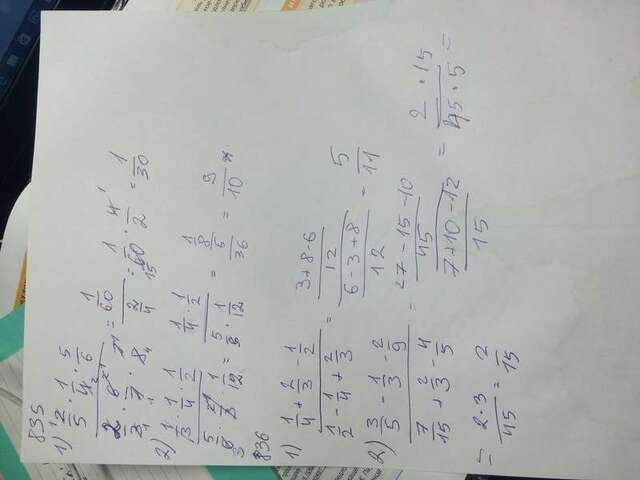 835
1) (2/5 · 1/4 · 5/6) / (2/3 · 6/7 · 7/8) = (1/60) / (2/4) = 1/60 · 4/2 = 1/30
2) (1/3 · 1/4 · 1/2) / (5/6 · 2/3 · 1/12) = (1/4 · 1/2) / (5/3 · 1/12) = (1/8) / (5/36) = 9/10
836
1) (1/4 + 2/3 - 1/2) / (1/2 - 1/4 + 2/3) = ((3+8-6)/12) / ((6-3+8)/12) = 5/11
2) (3/5 - 1/3 - 2/9) / (7/15 + 2/3 - 4/5) = ((27-15-10)/45) / ((7+10-12)/15) = (2 · 15)/(45 · 5) =
= (2·3)/45 = 2/15